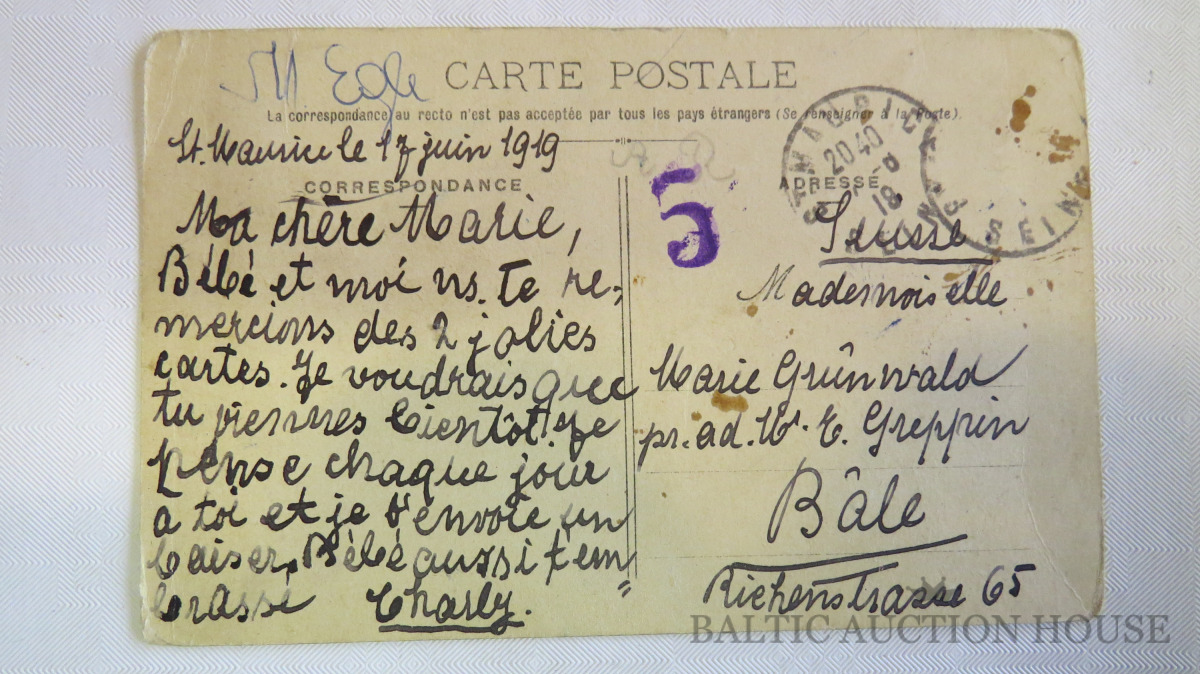 CARTE POSTALE
La correspondance au recto n'est pas acceptée par tous les pays étrangers (Se renseigner à la Poste).
St. Maurice le 17 juin 1919
CORRESPONDANCE
Ma chère Marie,
Bébé et moi ns. te re-
mercions des 2 jolies
cartes. Je voudrais que
tu viennes bientôt. Je
pense chaque jour
a toi et je t'envoie un
baiser. Bébé aussi t'em
brasse Charly.
5
ADRESSE
Suisse
Mademoiselle
Marie Grûnwald
pr. ad. E. Greppin
Bâle
Richenstrasse 65
ST MAURICE
20 40
18
SEINE
BALTIC AUCTION HOUSE